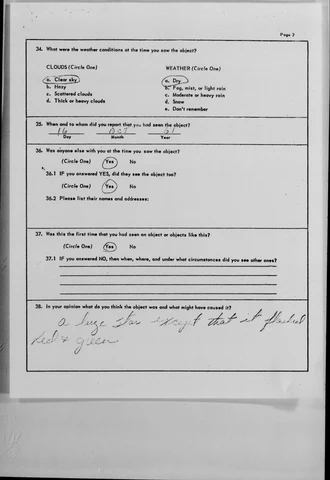 Page 7
34. What were the weather conditions at the time you saw the object?
CLOUDS (Circle One) WEATHER (Circle One)
a. Clear sky a. Dry
b. Hazy b. Fog, mist, or light rain
c. Scattered clouds c. Moderate or heavy rain
d. Thick or heavy clouds d. Snow
e. Don't remember
35. When and to whom did you report that you had seen the object?
16 OCT 61
Day Month Year
36. Was anyone else with you at the time you saw the object?
(Circle One) Yes No
36.1 IF you answered YES, did they see the object too?
(Circle One) Yes No
36.2 Please list their names and addresses:
37. Was this the first time that you had seen an object or objects like this?
(Circle One) Yes No
37.1 IF you answered NO, then when, where, and under what circumstances did you see other ones?
38. In your opinion what do you think the object was and what might have caused it?
a huge star except that it flashed
red & green